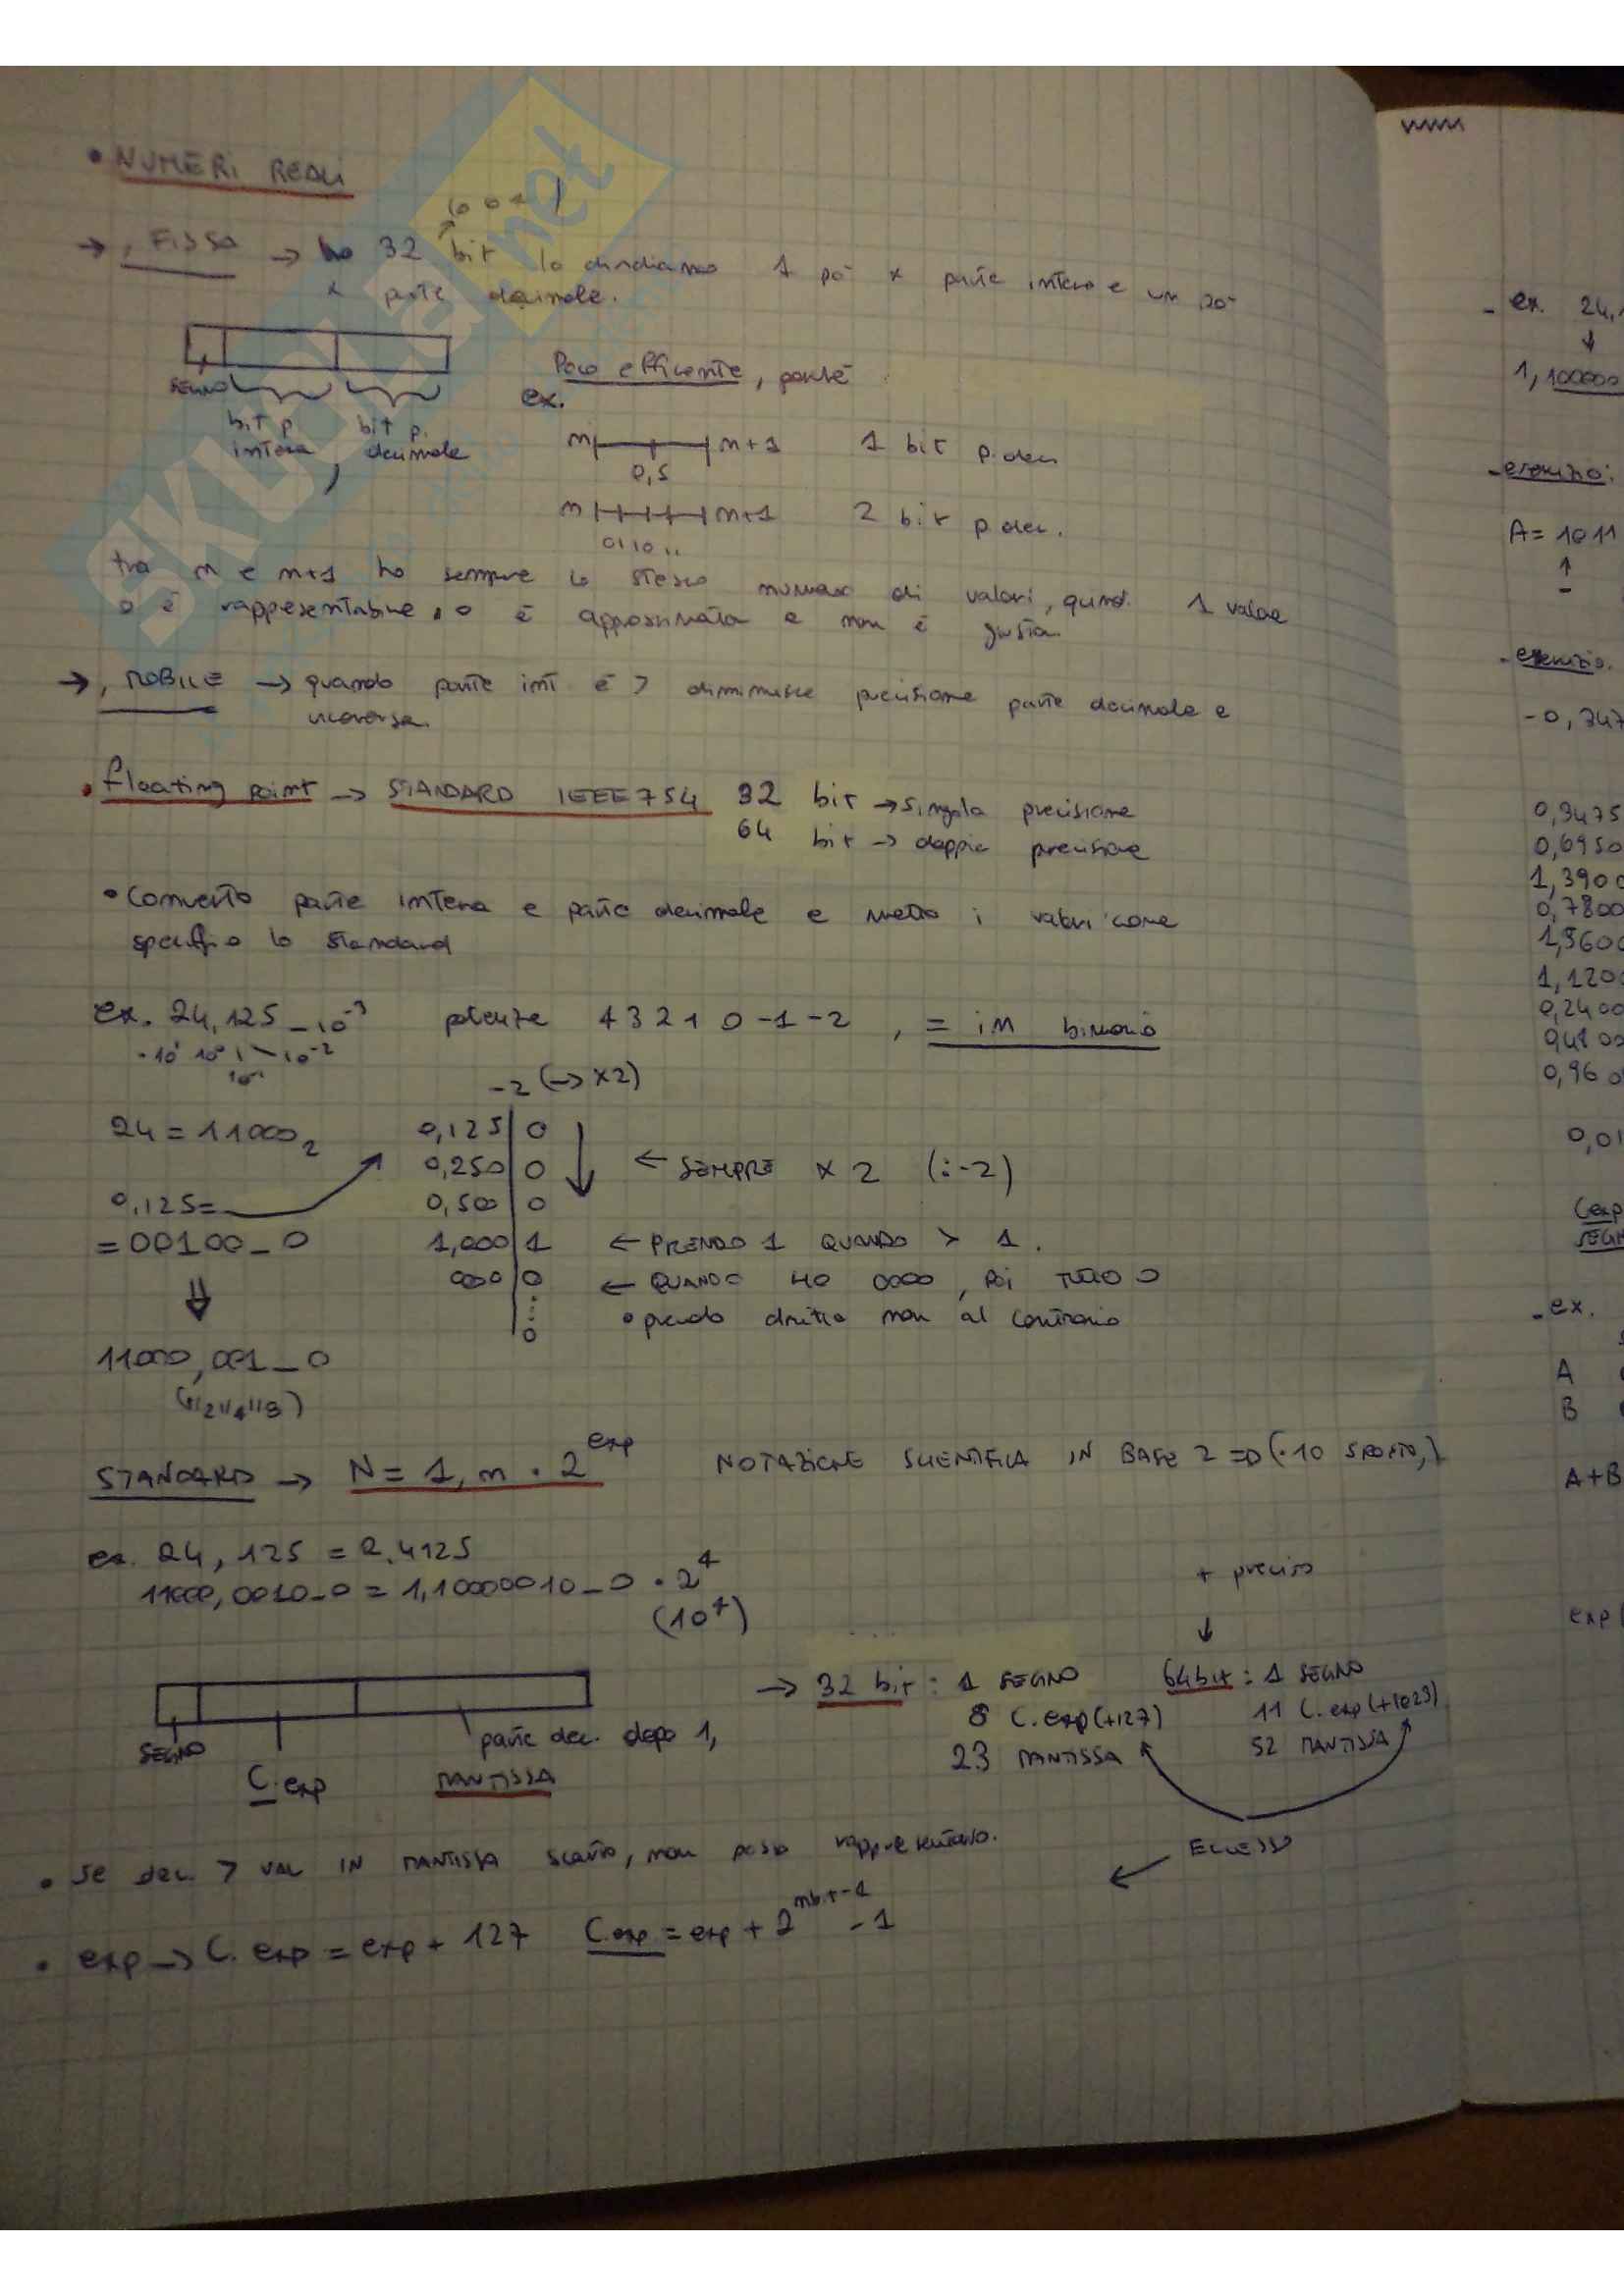 • NUMERI REALI
→ , FISSA → ho 32 bit lo dividiamo 1 pò x parte intera e un pò
(0 o 1)
x parte decimale.
SEGNO
bit p. intera , bit p. decimale
Poco efficente, perché
ex.
n n+1 1 bit p. dec.
0,5
n n+1 2 bit p. dec.
01 10 11
tra n e n+1 ho sempre lo stesso numero di valori, quindi 1 valore
o è rappresentabile, o è approssimata e non è giusta
→ , MOBILE → quando parte int è > diminuisce precisione parte decimale e
viceversa.
• floating point → STANDARD IEEE754 32 bit → singola precisione
64 bit → doppia precisione
• Converto parte intera e parte decimale e metto i valori come
specifica lo standard
ex. 24,125 _ 10⁻³ potenze 4 3 2 1 0 -1 -2 , = in binario
·10¹ 10⁰ 10⁻²
10⁻¹
-2 (→ x2)
24 = 11000₂ 0,125 | 0
0,250 | 0 ← SEMPRE x 2 (:-2)
0,125= 0,500 | 0
= 00100_0 1,000 | 1 ← PRENDO 1 QUANDO > 1.
000 | 0 ← QUANDO HO 0000, POI TUTTO 0
0 • prendo dritto non al contrario
11000,001_0
(1/2 1/4 1/8)
STANDARD → N = 1, m · 2^exp NOTAZIONE SCIENTIFICA IN BASE 2 => (·10 SPOSTO,)
ex. 24,125 = 2.4125
11000,0010_0 = 1,10000010_0 · 2⁴
(10⁴)
+ preciso
↓
→ 32 bit : 1 SEGNO 64bit : 1 SEGNO
8 C.exp(+127) 11 C.exp(+1023)
23 MANTISSA 52 MANTISSA
SEGNO
C.exp
parte dec. dopo 1,
MANTISSA
ECCESSO
• Se dec. > VAL IN MANTISSA scarto, non posso rappresentarlo.
• exp → C.exp = exp + 127 C.exp = exp + 2^nbit-1 - 1
- ex. 24,
↓
1,100000
- esercizio:
A = 1011
↑
-
- esercizio.
- 0,347
0,3475
0,6950
1,3900
0,7800
1,5600
1,1200
0,2400
0,96
0,01
- ex.
A
B
A+B
exp
SKUOLA.net